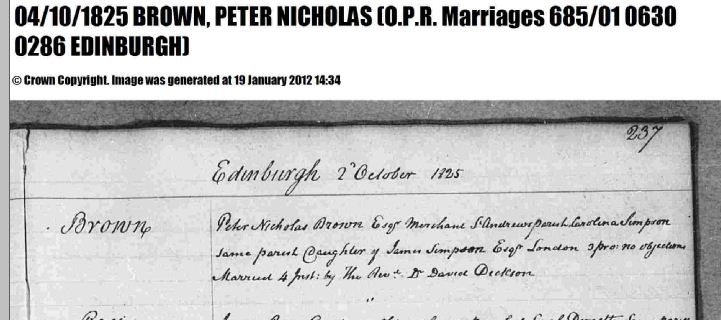 04/10/1825 BROWN, PETER NICHOLAS (O.P.R. Marriages 685/01 0630
0286 EDINBURGH)
© Crown Copyright. Image was generated at 19 January 2012 14:34
237
Edinburgh 2d October 1825
Brown
Peter Nicholas Brown Esqr Merchant St Andrews parish Carolina Simpson
same parish Daughter of James Simpson Esqr London 3 pro: no objections
Married 4 Inst: by The Revd. Dr David Dickson